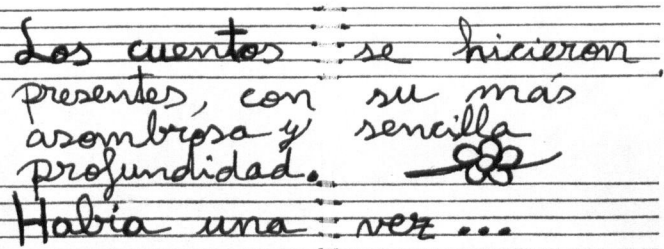 Los cuentos se hicieron
presentes, con su más
asombrosa y sencilla
profundidad.
Había una vez...